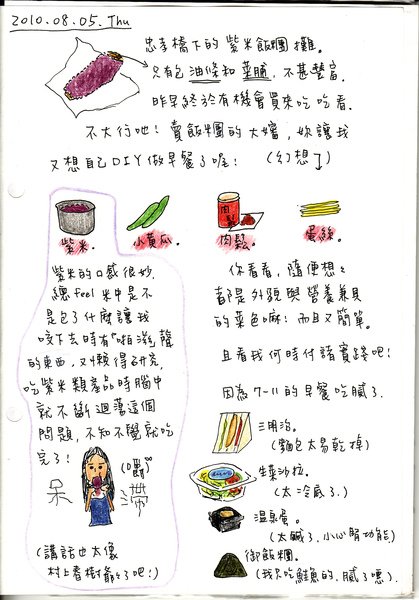 2010.08.05.Thu
忠孝橋下的紫米飯糰攤。
只有包油條和菜脯,不甚豐富.
昨早終於有機會買來吃吃看.
不太行吔!賣飯糰的大嬸,妳讓我
又想自己DIY做早餐了喔! (幻想了)
紫米.
小黃瓜.
肉鬆.
蛋絲.
紫米的口感很妙.
總feel米中是不
是包了什麼讓我
咬下去時有"啪滋"聲
的東西,又懶得研究,
吃紫米類產品時腦中
就不斷迴蕩這個
問題,不知不覺就吃
完了!
呆
滯
(嚼~)
(講話也太像
村上春樹爺了吧!)
你看看,隨便想想
都是外頭與營養兼具
的菜色嘛!而且又簡單.
且看我何時付諸實踐吧!
因為7-11的早餐吃膩了.
三明治.
(麵包太易乾掉)
生菜沙拉.
(太冷感了.)
溫泉蛋.
(太鹹了.小心腎功能)
御飯糰.
(我只吃鮭魚的.膩了噁.)